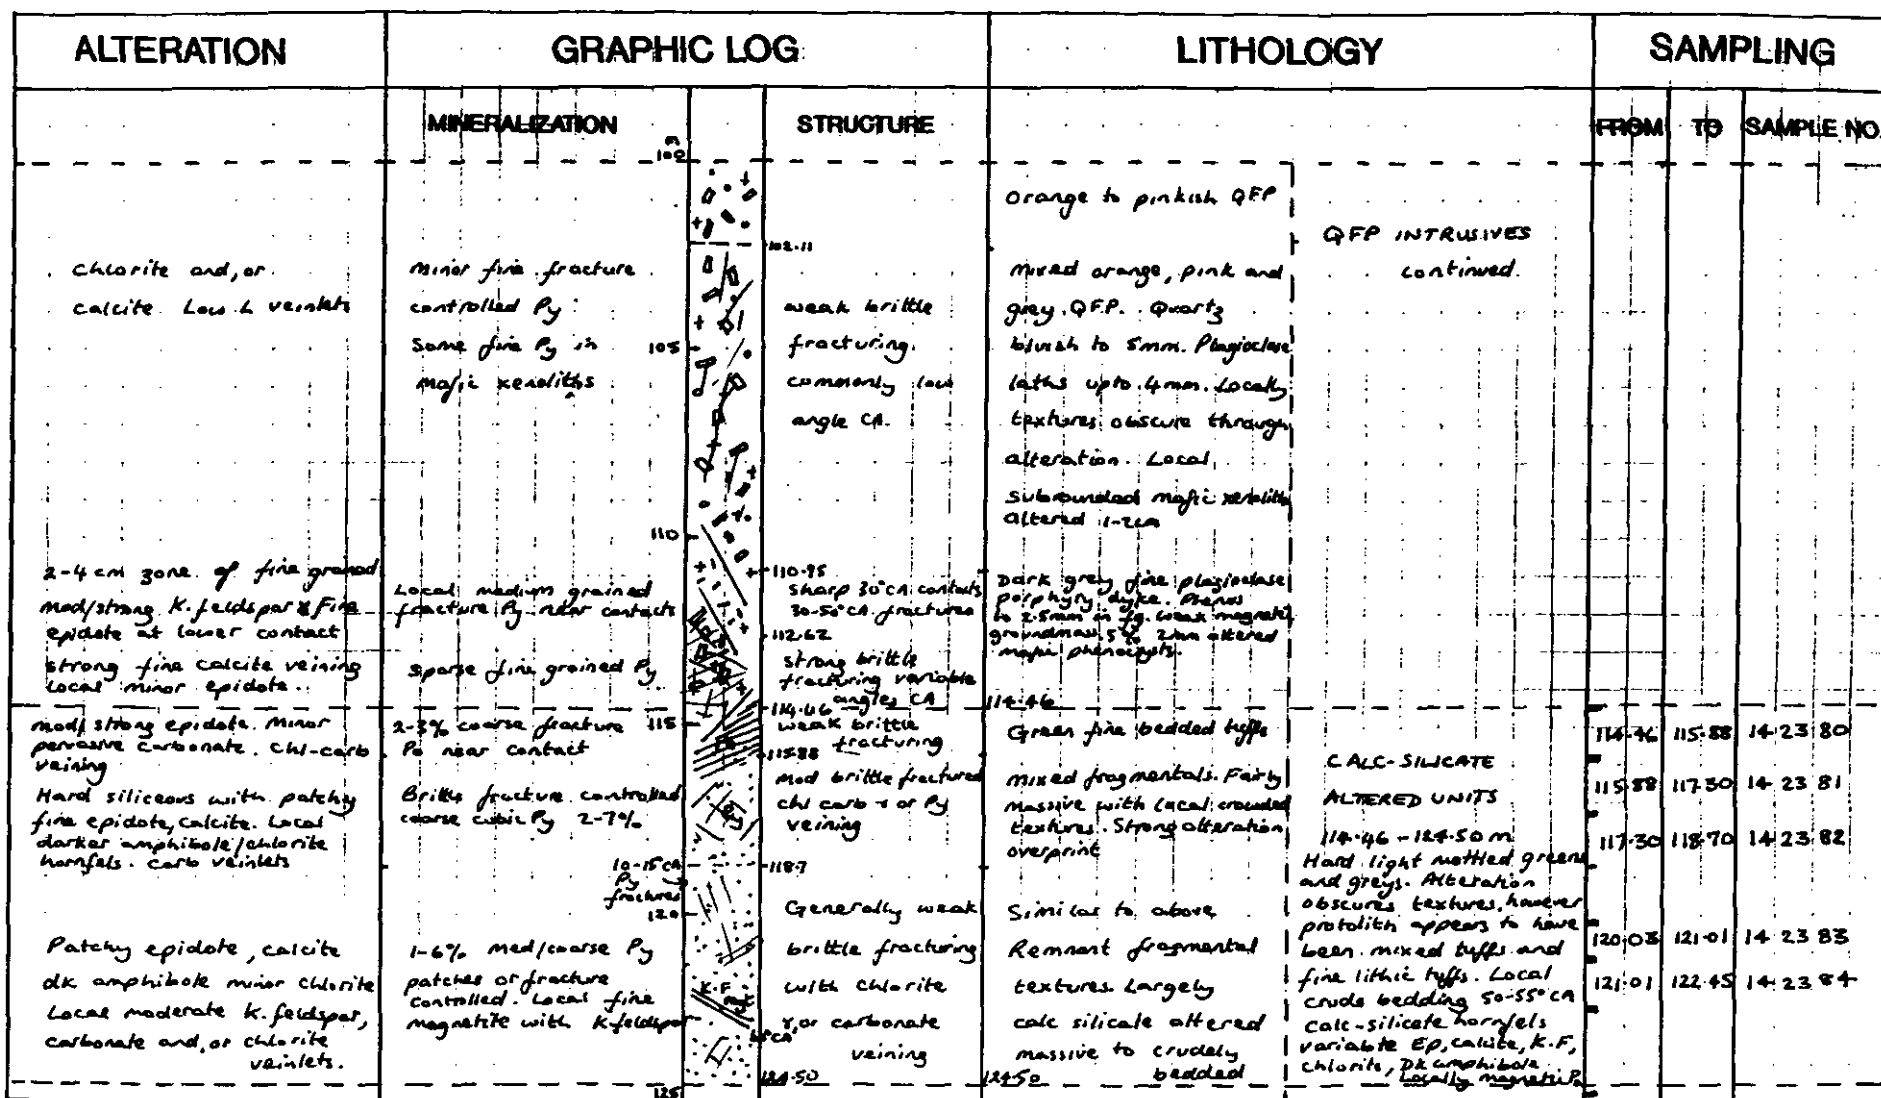 ALTERATION
GRAPHIC LOG
LITHOLOGY
SAMPLING
MINERALIZATION
STRUCTURE
FROM TO SAMPLE NO.
m
100
105
110
115
10-15 CA
Py
fractures
120
125
Chlorite and, or
calcite Low L veinlets
2-4 cm zone of fine grained
mod/strong K.feldspar & Fine
epidote at lower contact
strong fine calcite veining
Local minor epidote.
mod/strong epidote. Minor
pervasive carbonate. Chl-carb
veining
Hard siliceous with patchy
fine epidote, calcite. Local
darker amphibole/chlorite
hornfels. Carb veinlets
Patchy epidote, calcite
dk amphibole minor chlorite
Local moderate K.feldspar,
carbonate and, or chlorite
veinlets.
Minor fine fracture
controlled Py
Some fine Py in
mafic xenoliths
Local medium grained
fracture Py near contacts
Sparse fine grained Py
2-3% coarse fracture
Po near contact
Brittle fracture controlled
coarse cubic Py 2-7%
1-6% med/coarse Py
patches or fracture
controlled. Local fine
magnetite with K.feldspar
Py
K.F
102.11
weak brittle
fracturing.
commonly low
angle CA.
110.95
Sharp 30° CA contacts
30-50° CA fractures
112.62
strong brittle
fracturing variable
angles CA
114.46
weak brittle
fracturing
115.88
Mod brittle fractured
chl carb + or Py
veining
118.7
Generally weak
brittle fracturing
with chlorite
+, or carbonate
veining
124.50
Orange to pinkish QFP
Mixed orange, pink and
grey QFP. Quartz
bluish to 5mm. Plagioclase
laths upto 4mm. Locally
textures obscure through
alteration. Local
subrounded mafic xenoliths
altered 1-2cm
Dark grey fine plagioclase
porphyry dyke. Phenos
to 2.5mm in fg. weak magnetic
groundmass. 5% 2mm altered
mafic phenocrysts.
114.46
Green fine bedded tuffs
Mixed fragmentals. Fairly
massive with local crowded
textures. Strong alteration
overprint
Similar to above
Remnant fragmental
textures. Largely
calc silicate altered
massive to crudely
bedded
124.50
QFP INTRUSIVES
continued.
CALC-SILICATE
ALTERED UNITS
114.46 - 124.50 m
Hard light mottled greens
and greys. Alteration
obscures textures, however
protolith appears to have
been mixed tuffs and
fine lithic tuffs. Local
crude bedding 50-55° CA
Calc-silicate hornfels
variable Ep, calcite, K.F,
chlorite, Dk amphibole
Locally magnetic
114.46 115.88 14 23 80
115.88 117.30 14 23 81
117.30 118.70 14 23 82
120.03 121.01 14 23 83
121.01 122.45 14 23 84